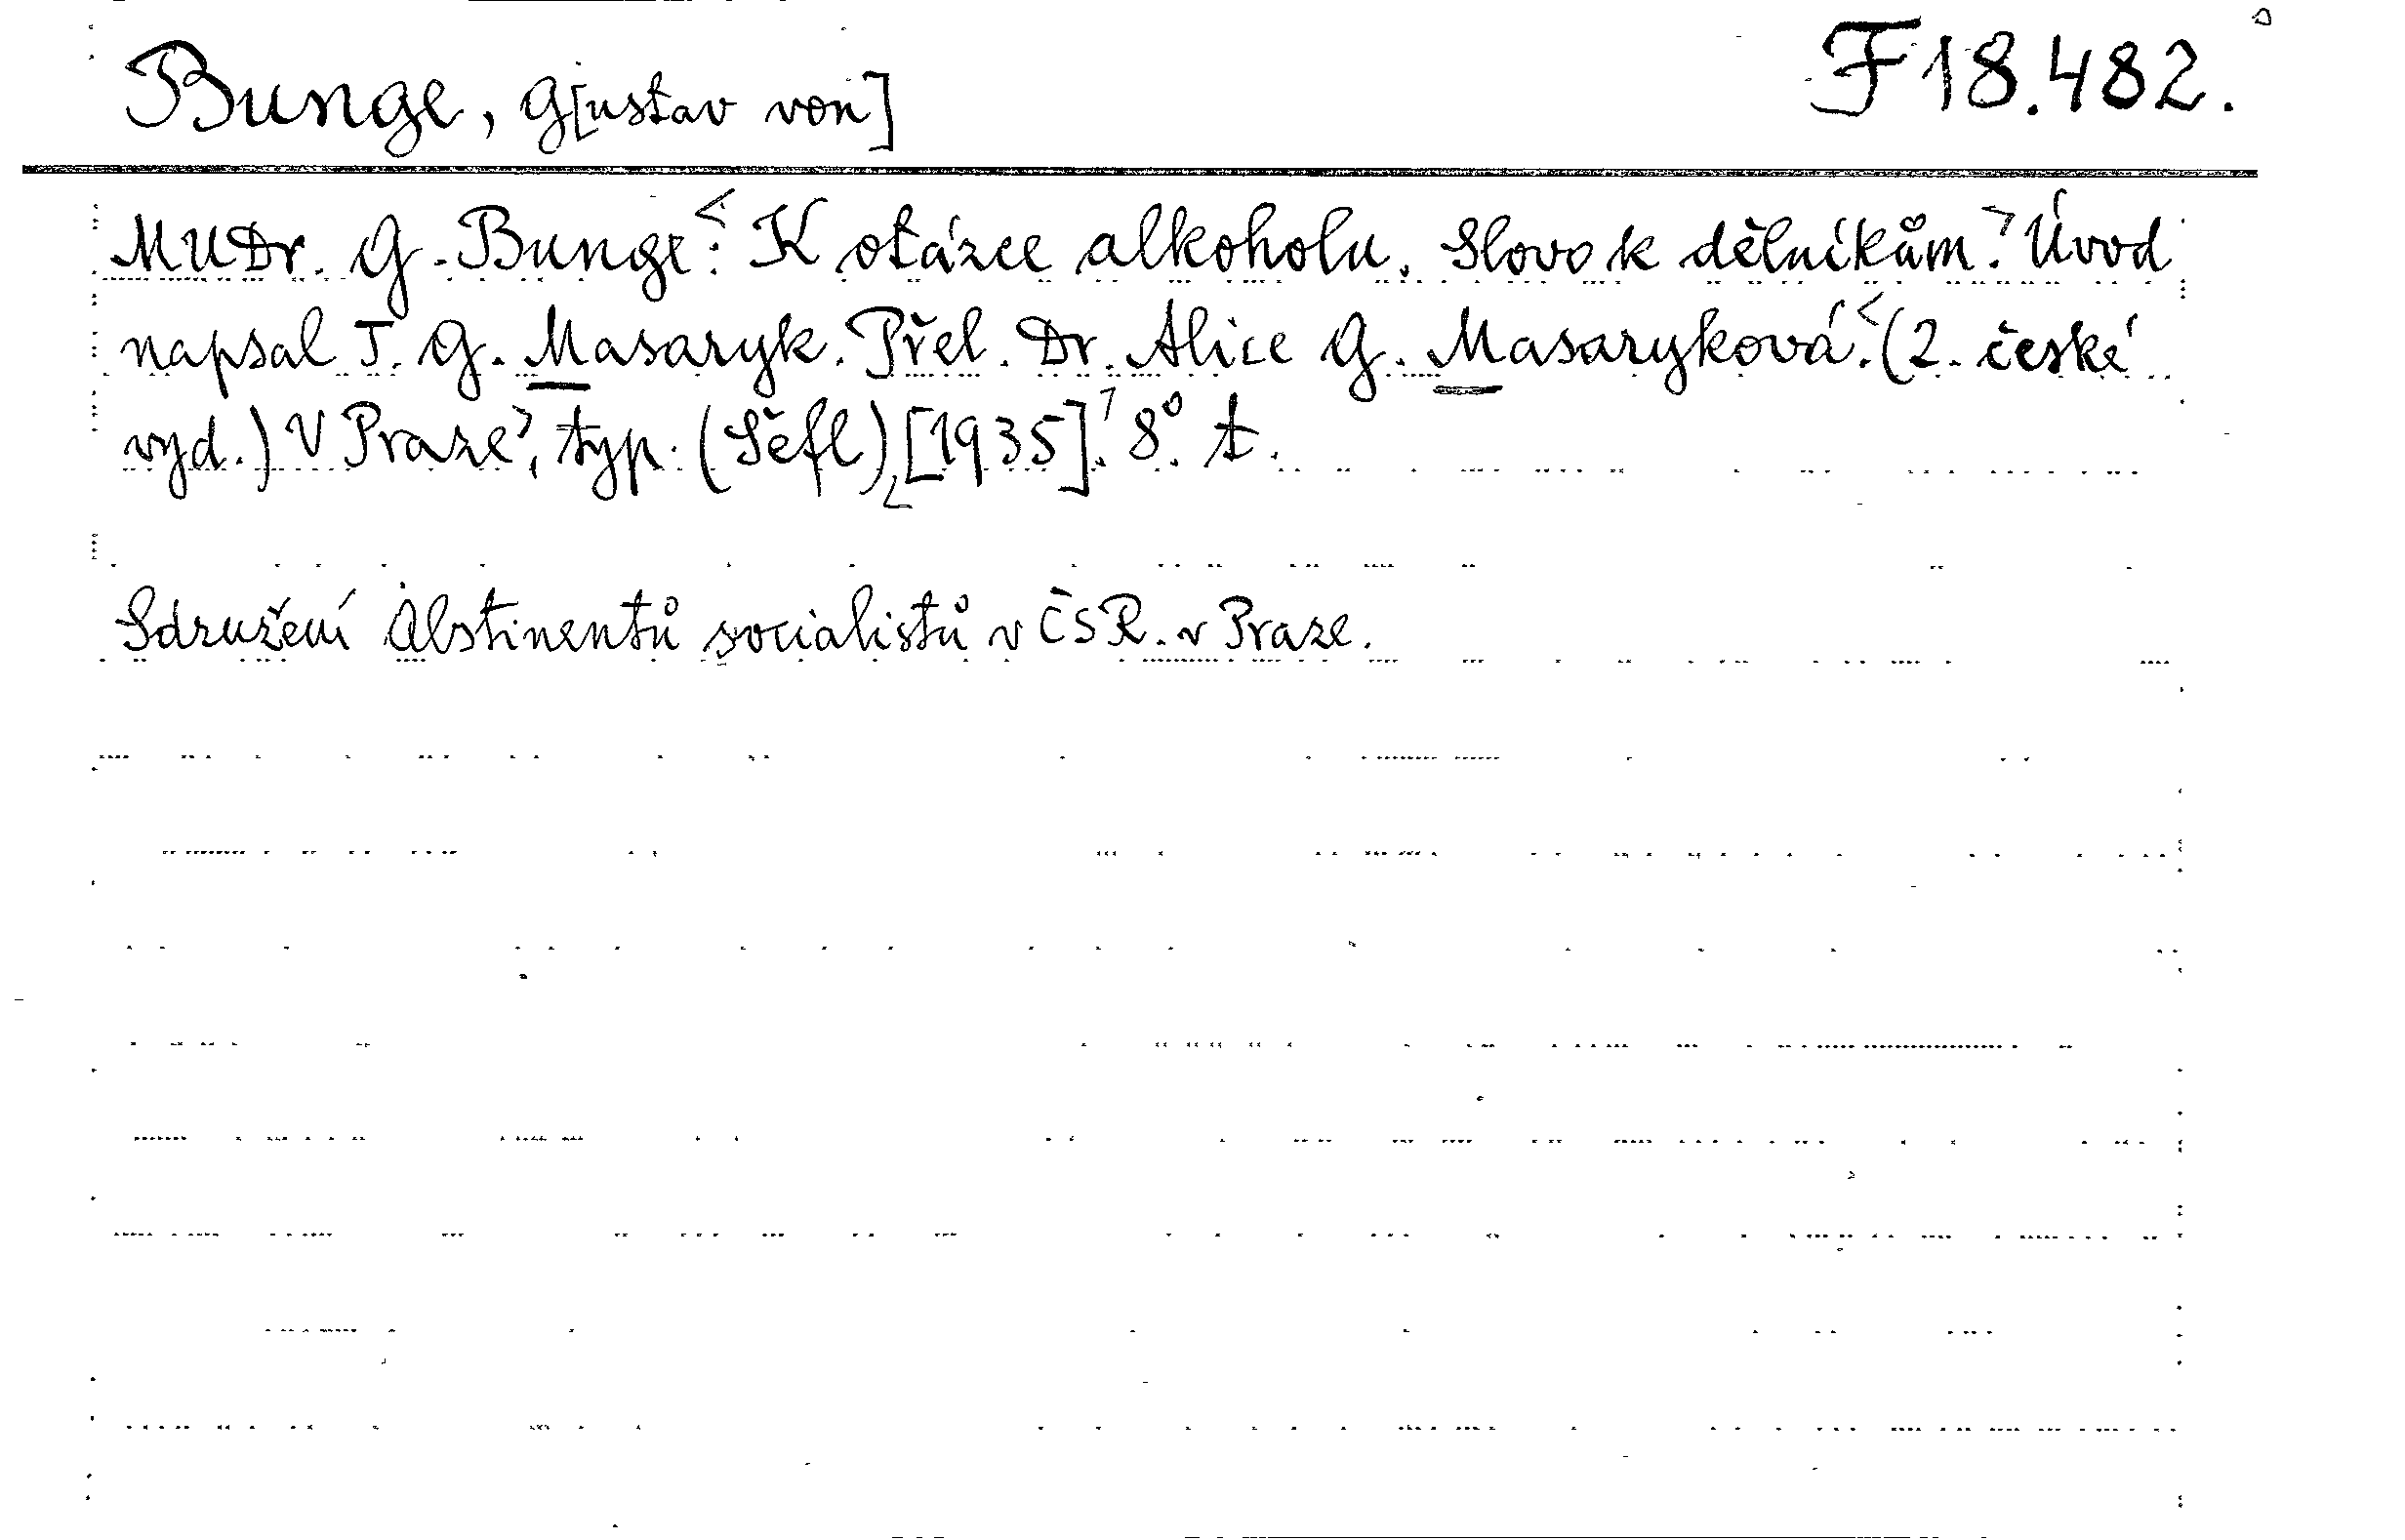 Bunge, G[ustav von]
F 18.482.
MUDr. G. Bunge<: K otázce alkoholu. Slovo k dělníkům.> Úvod
napsal T. G. Masaryk. Přel. Dr. Alice G. Masaryková.<(2. české
vyd.) V Praze>, typ. (Šefl)<[1935].> 8°. t.
Sdružení Abstinentů socialistů v ČSR. v Praze.